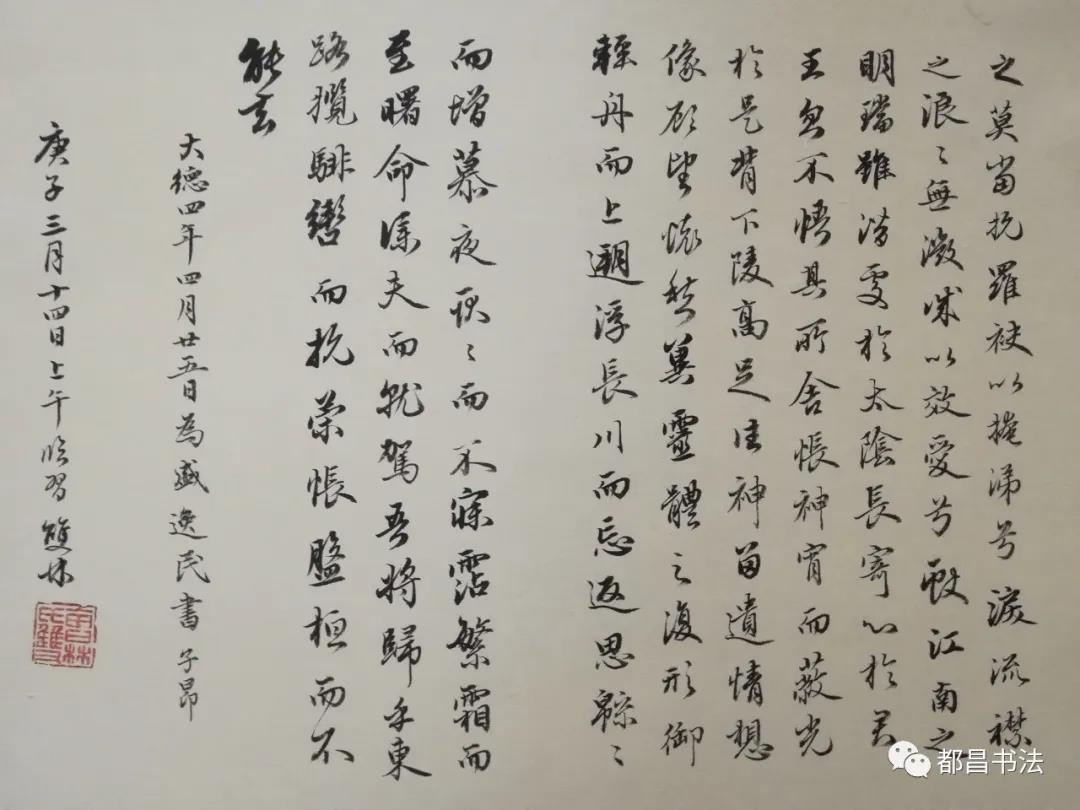 之莫當抗羅袂以掩涕兮淚流襟
之浪〻無微誠以效愛兮獻江南之
明璫雖潛處於太陰長寄心於君
王忽不悟其所舍悵神宵而蔽光
於是背下陵高足往神留遺情想
像顧望懷愁冀靈體之復形御
輕舟而上遡浮長川而忘返思綿〻
而增慕夜耿〻而不寐霑繁霜而
至曙命僕夫而就駕吾將歸乎東
路攬騑轡而抗策悵盤桓而不
能去
大德四年四月廿五日為盛逸民書子昂
庚子三月十四日上午臨習雙林
都昌书法